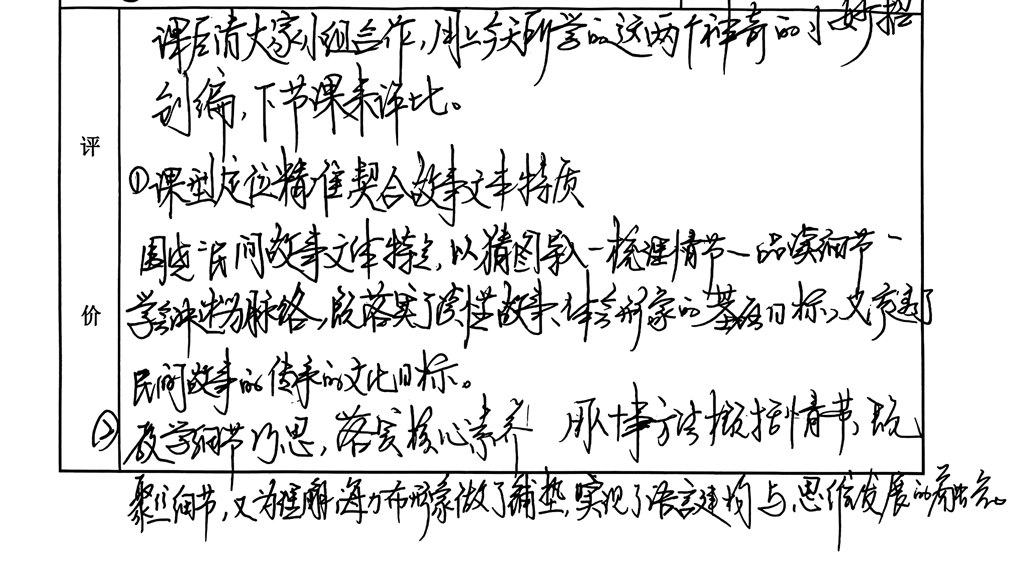 课后请大家小组合作,用上今天所学的这两个神奇的小妙招
创编,下节课来评比。
评
①课型定位精准契合故事文本特质
围绕民间故事文本特点,以猜图导入-梳理情节-品读细节-
学会讲述为脉络,既落实了读懂故事、体会形象的基础目标,又贯通了
价
民间故事的传承的文化目标。
② 教学细节巧思,落实核心素养 用人+事方法概括情节,既
聚焦细节,又为理解海力布形象做了铺垫,实现了语言建构与思维发展的融合。